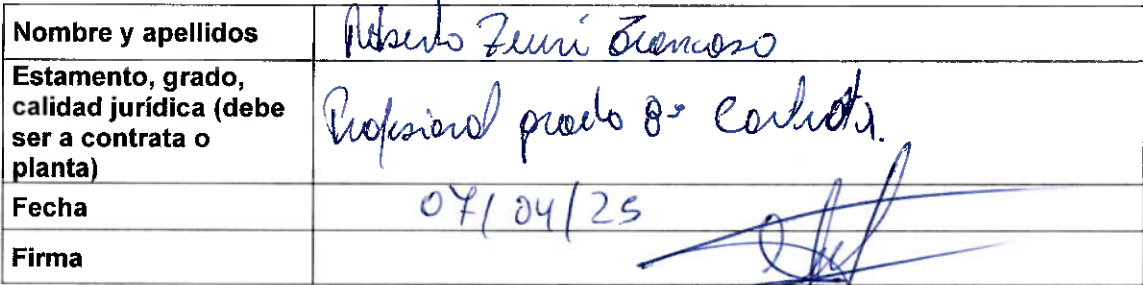 Nombre y apellidos
Roberto
Estamento, grado,
calidad jurídica (debe
ser a contrata o
planta)
Profesional grado 8º Contrata.
Fecha
07/04/25
Firma